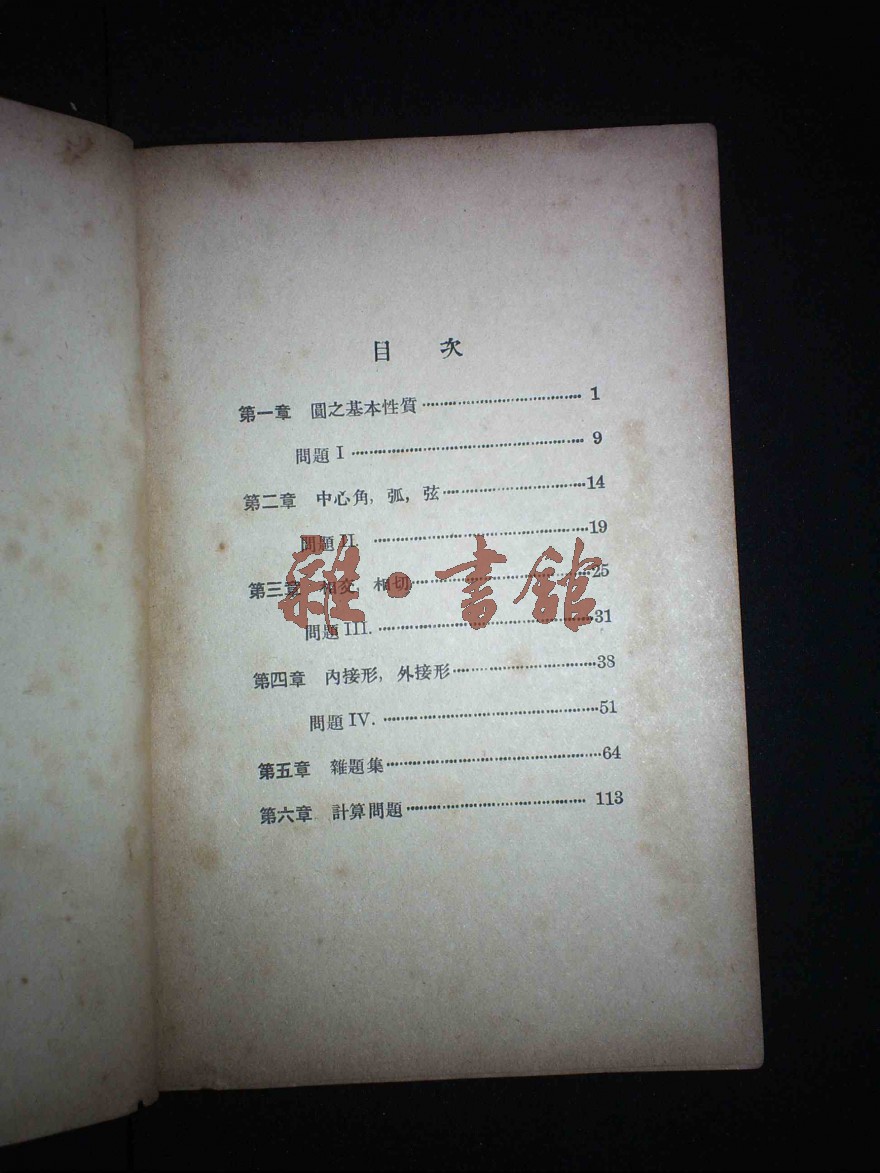 目 次
第一章 圓之基本性質……………………………… 1
問題 I ……………………………………… 9
第二章 中心角, 弧, 弦……………………………14
問題 II. ……………………………………19
第三章 相交, 相切………………………………25
問題 III. ……………………………………31
第四章 內接形, 外接形……………………………38
問題 IV. ……………………………………51
第五章 雜題集……………………………………64
第六章 計算問題………………………………… 113
雜·書館